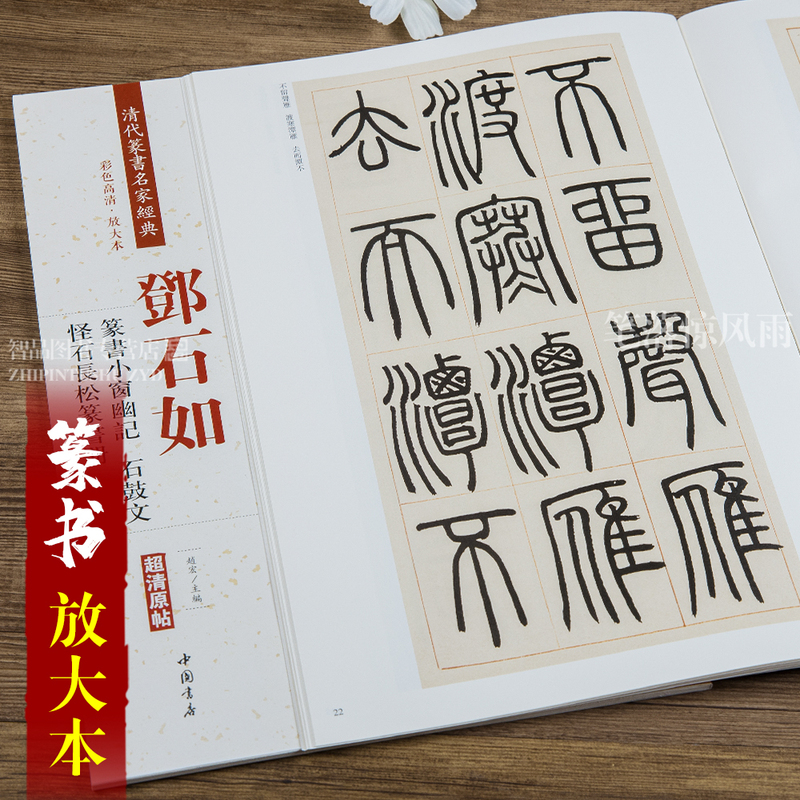 清代篆書名家經典
彩色高清·放大本
鄧石如
篆書小窗幽記 石鼓文
怪石長松篆書
超清原帖
趙宏/主編
中國書店
篆书
放大本
不留聲雁 渡寒潭雁 去而潭不
不留聲雁
渡寒潭雁
去而潭不
22
笔落惊风雨